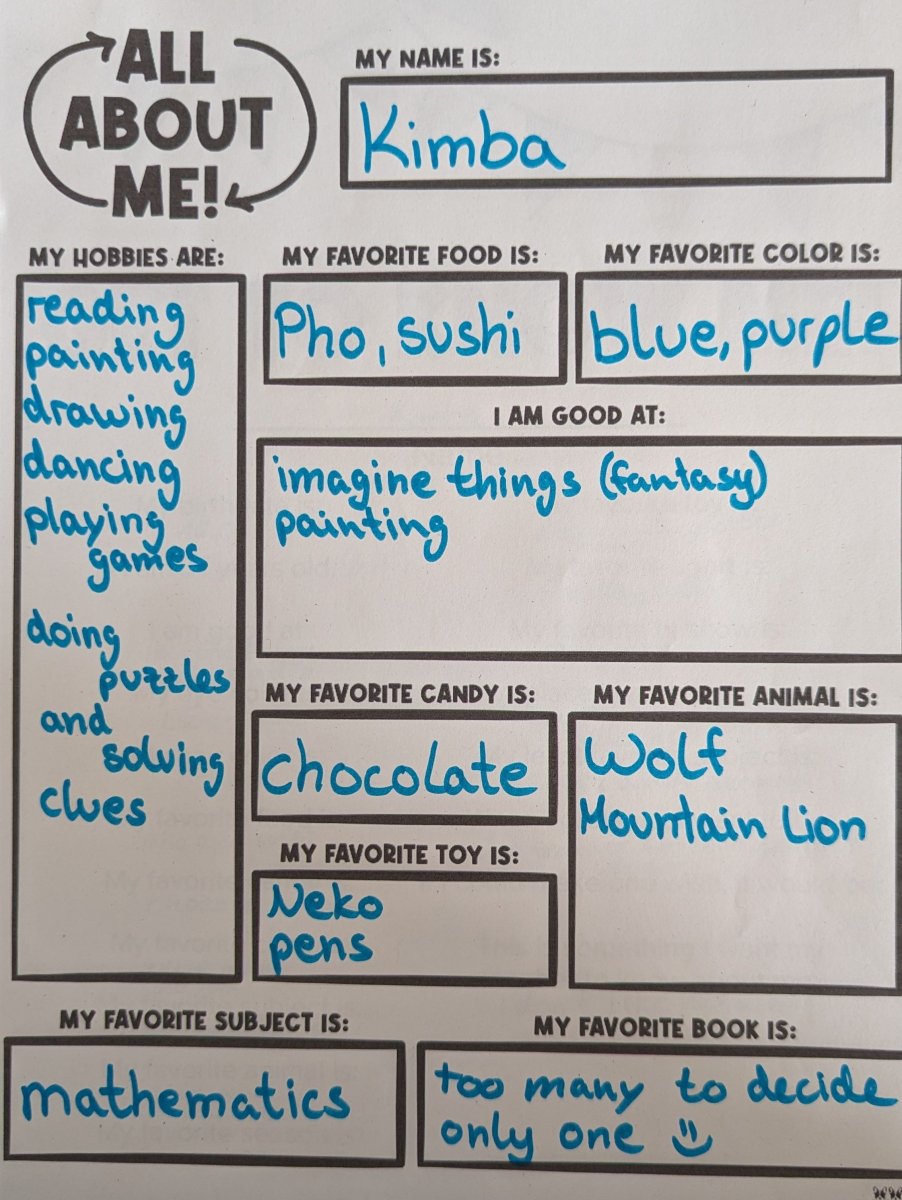 ALL
ABOUT
ME!
MY NAME IS:
Kimba
MY HOBBIES ARE:
reading
painting
drawing
dancing
playing
games
doing
puzzles
and
solving
clues
MY FAVORITE FOOD IS:
Pho, sushi
MY FAVORITE COLOR IS:
blue, purple
I AM GOOD AT:
imagine things (fantasy)
painting
MY FAVORITE CANDY IS:
chocolate
MY FAVORITE ANIMAL IS:
Wolf
Mountain Lion
MY FAVORITE TOY IS:
Neko
pens
MY FAVORITE SUBJECT IS:
mathematics
MY FAVORITE BOOK IS:
too many to decide
only one